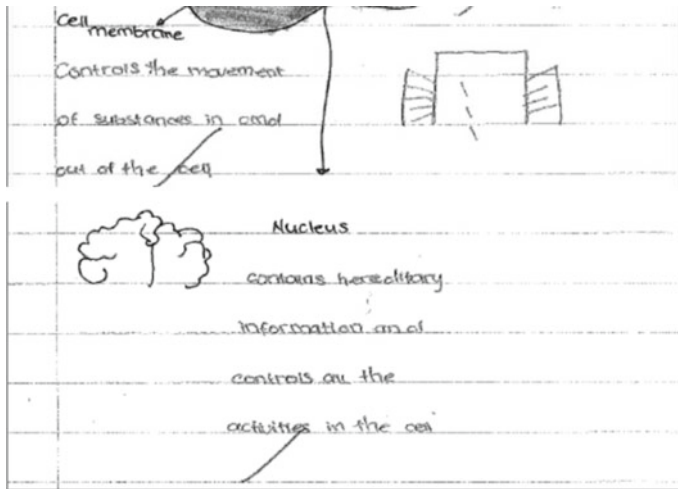 Cell
membrane
Controls the movement
of substances in and
out of the cell
Nucleus
contains hereditary
information and
controls all the
activities in the cell